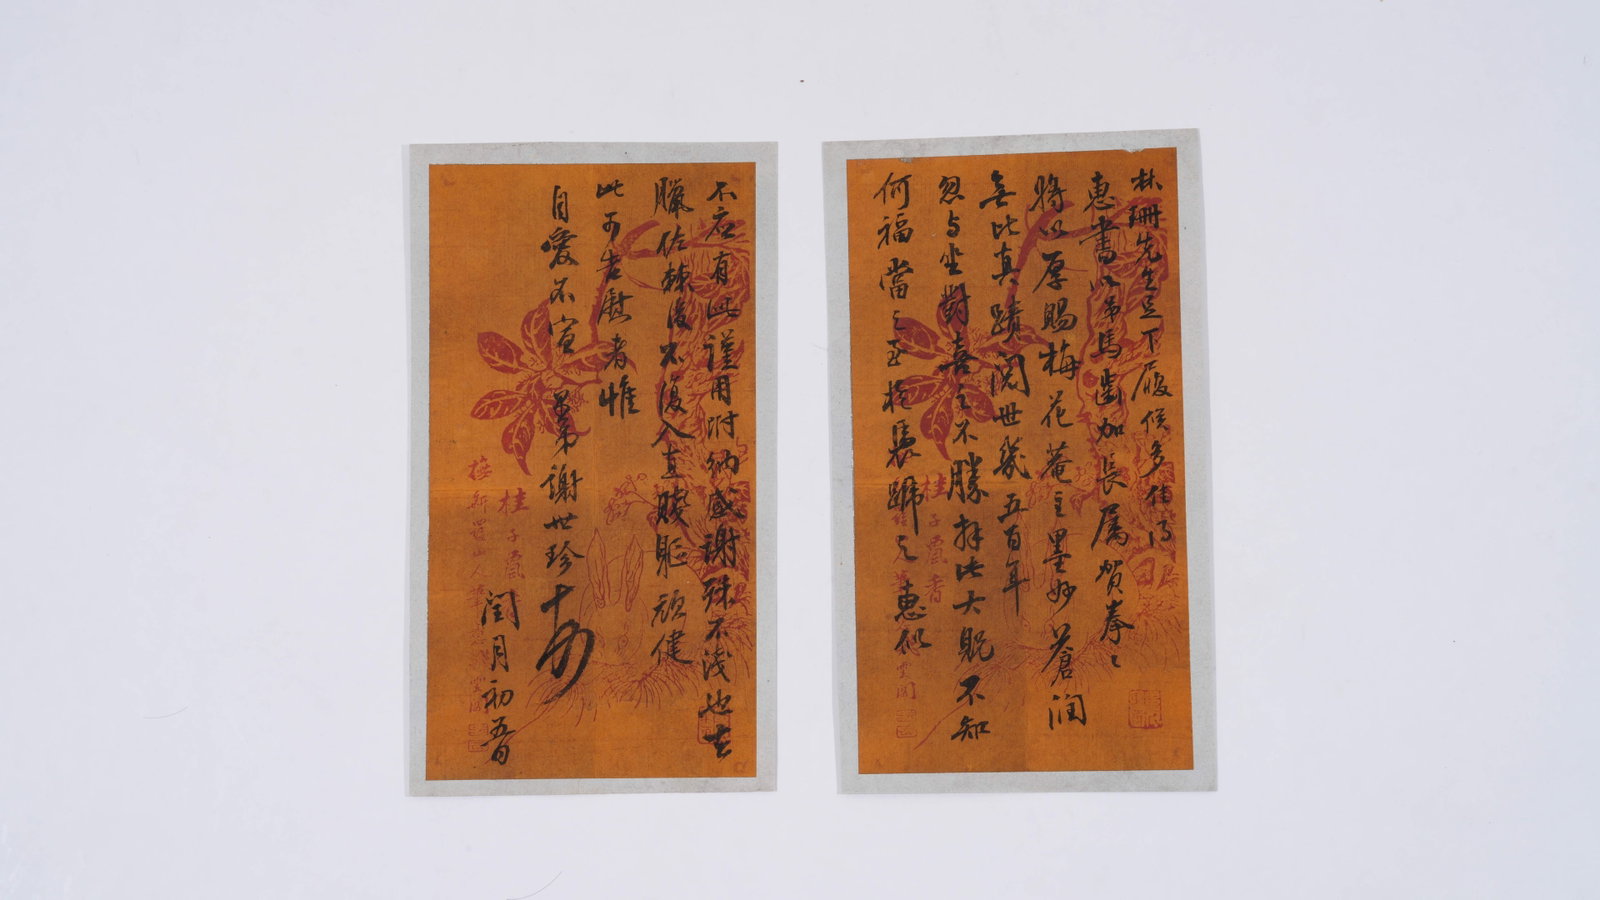 林珊先生足下履候多佳為
惠書以弟馬齒加長属賀奉〻
將以厚賜梅花菴主墨妙蒼潤
無比真蹟閱世幾五百年
忽与坐對喜之不勝拜此大貺不知
何福當之至於裹蹏之惠似
不应有此謹用附納感謝殊不淺也去
臘佐棘後不復入直賤軀頑健
此可告慰者惟
自愛不宣 弟謝世珍十
閏月初五日
桂
子
者
桂
子